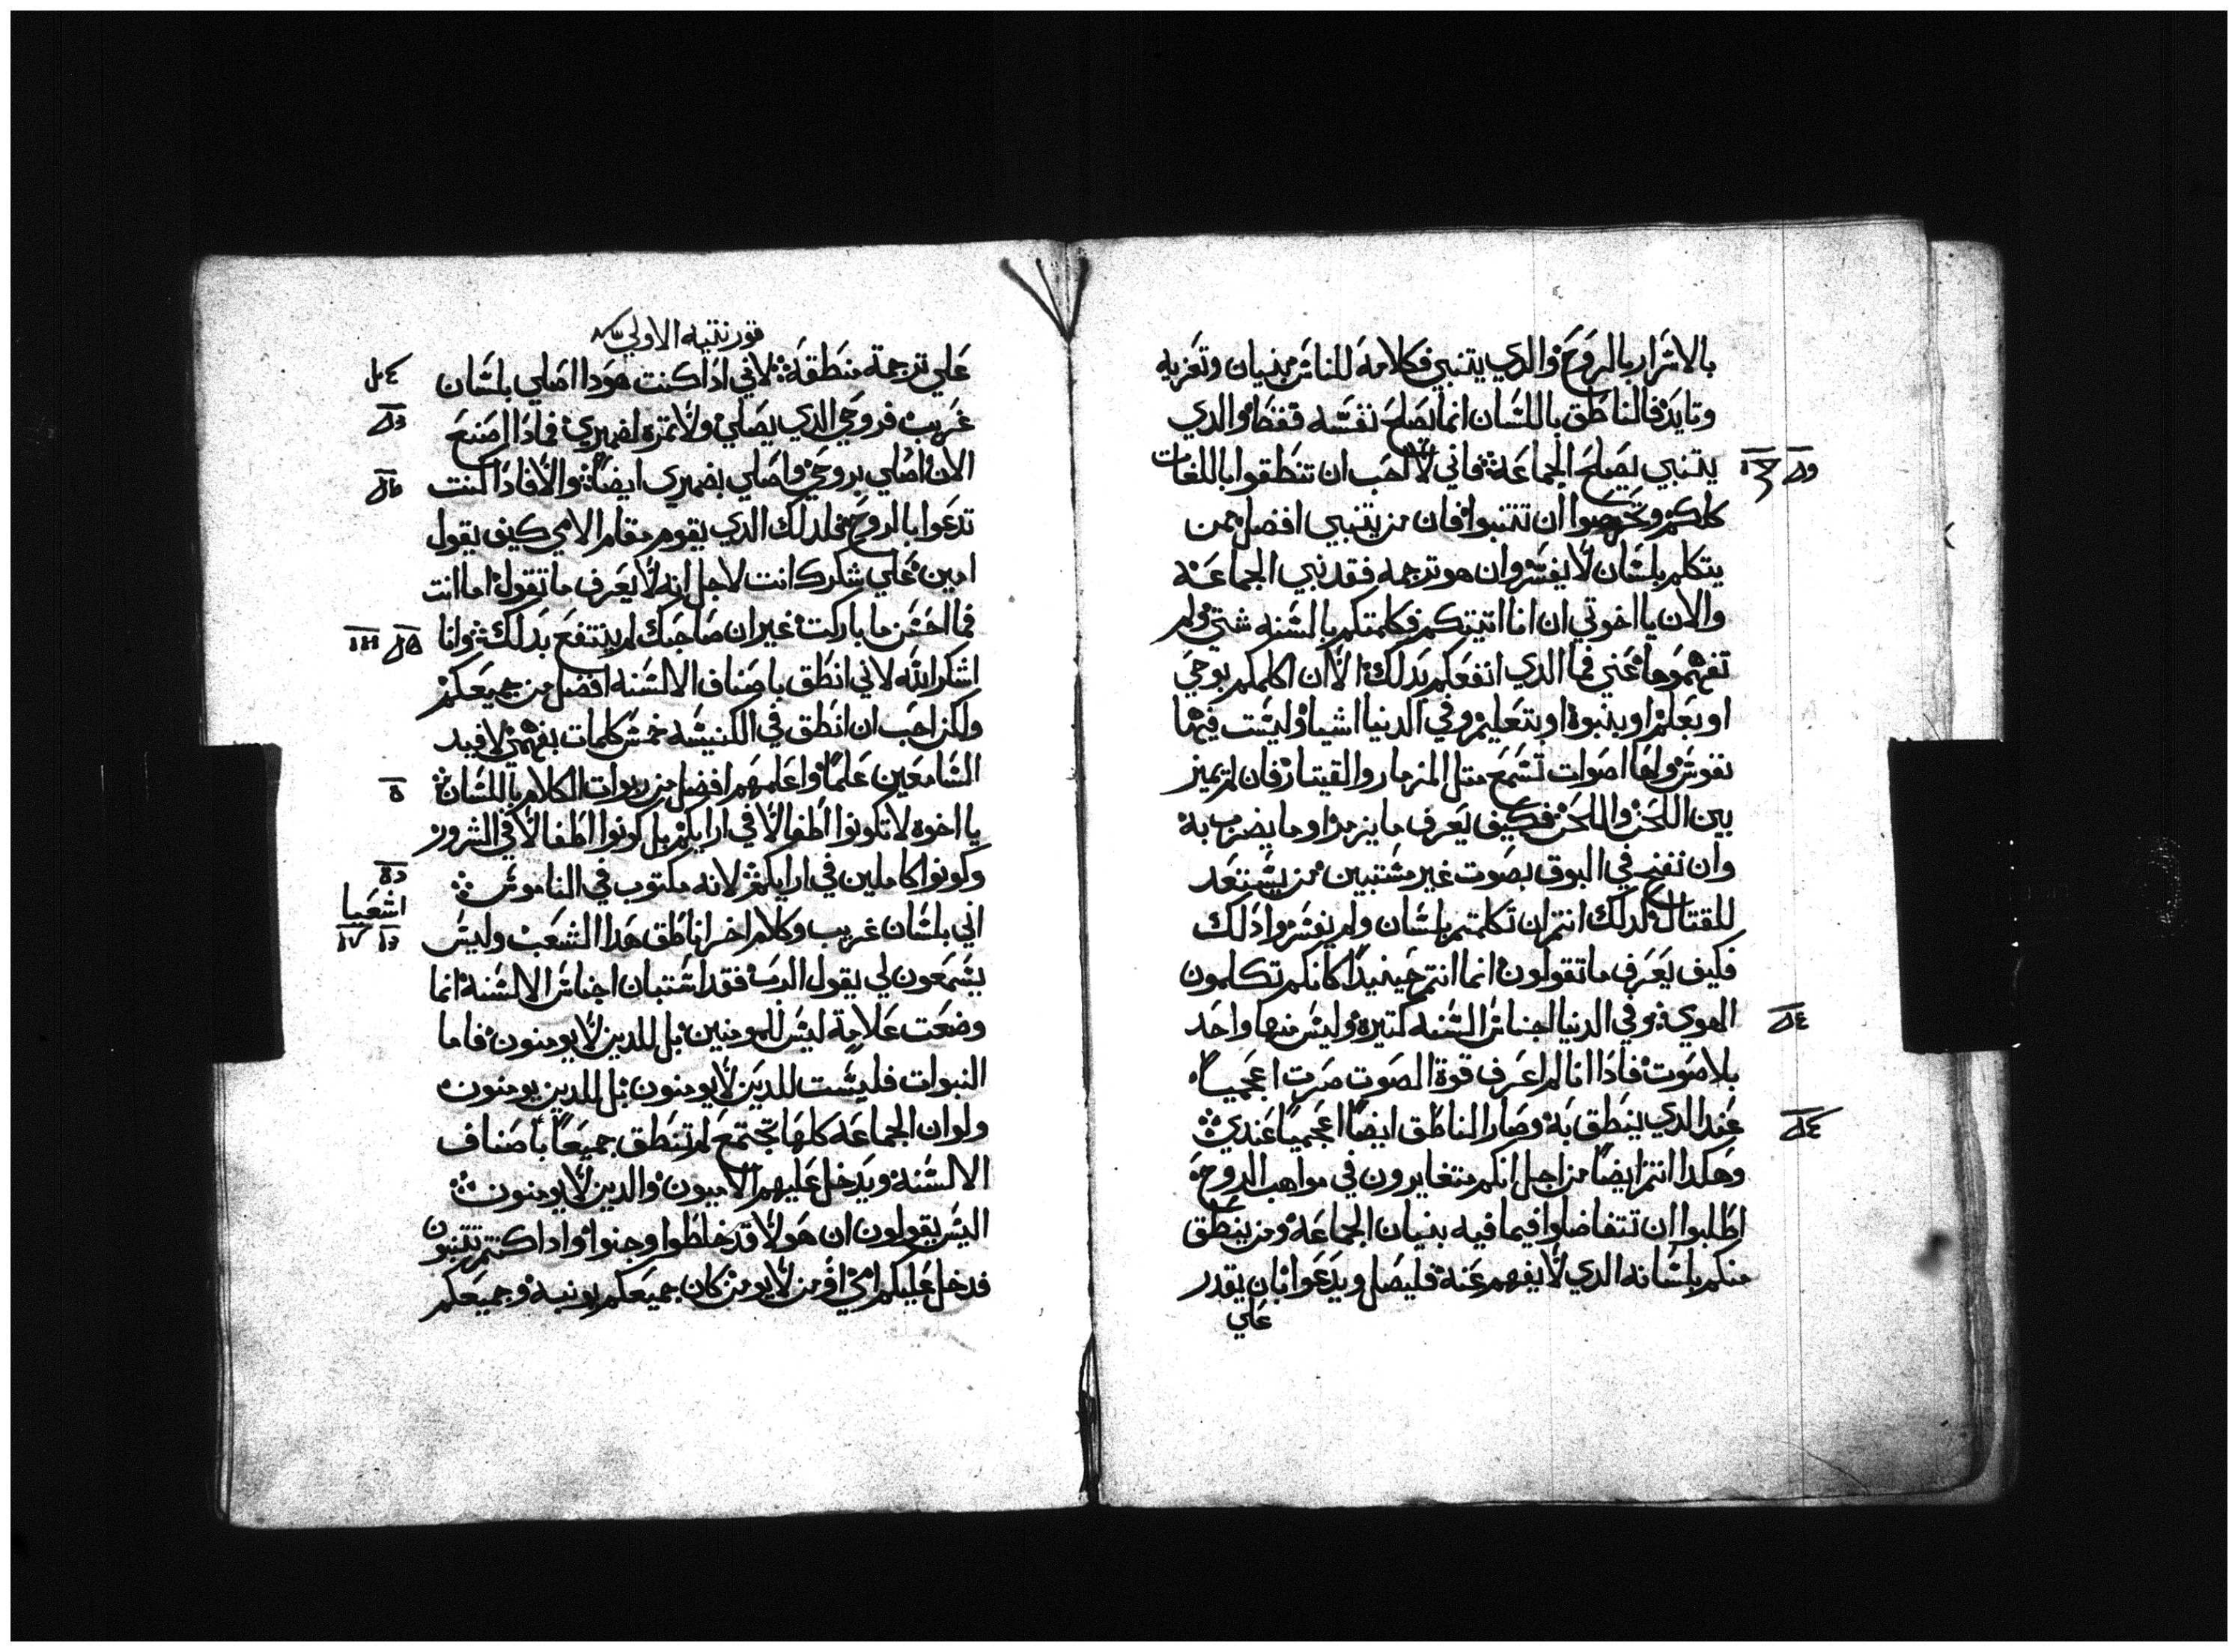 بالاسرار بالروح والدي يتنبي فكلامه للناس بنيان وتعزيه
وتايد فالناطق باللسان انما يصلح نفسه فقط والدي
يتنبي يصلح الجماعة فاني لاحب ان تنطقوا باللغات
كلكم وتحرصوا ان تتنبوا فان من يتنبي افضل ممن
يتكلم بلسان لا يفسر وان هو ترجمه فقد نبي الجماعة
والان يا اخوتي ان انا اتيتكم فكلمتكم بالسنه شتي ولم
تفهموها عني فما الدي انفعكم بدلك الا ان اكلمكم بوحي
او بعلم او بنبوة او بتعليم وفي الدنيا اشيا وليست فيها
نفوس ولها اصوات تسمع متل المزمار والقيتار فان لم يميز
بين اللحن واللحن فكيف يعرف ما يزمر او ما يضرب به
وان نفخ في البوق بصوت غير مستبين من يستعد
للقتال لدلك انتم ان تكلمتم بلسان ولم يفسروا دلك
فكيف يعرف ما تقولون انما انتم حينيدا كانكم تكلمون
الهوي وفي الدنيا اجناس السنه كتيره وليس منها واحد
بلا صوت فادا انا لم اعرف قوة الصوت صرت اعجميا
عند الدي ينطق به وصار الناطق ايضا اعجميا عندي
وهكدا انتم ايضا من اجل انكم متغايرون في مواهب الروح
اطلبوا ان تتفاضلوا فيما فيه بنيان الجماعة ومن ينطق
منكم بلسانه الدي لا يفهم عنه فليصل ويدعوا بان يقدر
علي
قورنتيه الاولي
علي ترجمة منطقه لاني ادا كنت هودا اصلي بلسان
غريب فروحي الدي يصلي ولا تمره لضميري فمادا اصنع
الان اصلي بروحي واصلي بضميري ايضا والا فادا كنت
تدعوا بالروح فدلك الدي يقوم مقام الامي كيف يقول
امين علي شكرك انت لاجل انه لا يعرف ما تقول اما انت
فما احسن ما باركت غير ان صاحبك لم ينتفع بدلك وانا
اشكر الله لاني انطق باصناف الالسنه افضل من جميعكم
ولكن احب ان انطق في الكنيسه خمس كلمات بفهمي لافيد
السامعين علما واعلمهم افضل من ربوات الكلام باللسان
يا اخوه لا تكونوا اطفالا في ارايكم بل كونوا اطفالا في الشرور
وكونوا كاملين في ارايكم لانه مكتوب في الناموس
اشعيا
اني بلسان غريب وكلام اخر اناطق هدا الشعب وليس
يسمعون لي يقول الرب فقد استبان اجناس الالسنة انما
وضعت علامة ليس للمومنين بل للدين لا يومنون فاما
النبوات فليست للدين لا يومنون بل للدين يومنون
ولو ان الجماعه كلها تجتمع لم تنطق جميعا باصناف
الالسنه ويدخل عليهم الاميون والدين لا يومنون
اليس يقولون ان هولا قد خلطوا وجنوا وادا كنتم تتنبون
فدخل عليكم امي او من لا يومن كان جميعكم يونبه وجميعكم